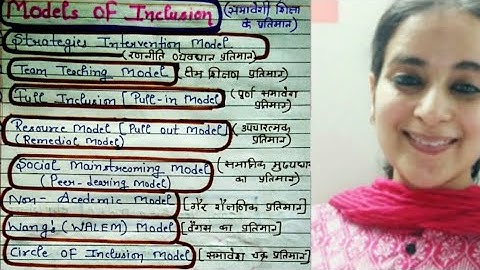 Models of Inclusion (समावेशी शिक्षा
के प्रतिमान)
Strategies Intervention Model
(रणनीति व्यवधान प्रतिमान)
Team Teaching Model (टीम शिक्षण प्रतिमान)
Full Inclusion / Pull-in Model (पूर्ण समावेश
प्रतिमान)
Resource Model [Pull out Model] (उपचारात्मक
(Remedial Model) प्रतिमान)
Social Mainstreaming Model (सामाजिक मुख्यधारा
(Peer- Model) का प्रतिमान)
Non- Acedemic Model [गैर शैक्षणिक प्रतिमान]
Wang's (WALEM) Model [वैंगस का प्रतिमान]
Circle OF Inclusion Model [समावेश चक्र प्रतिमान]